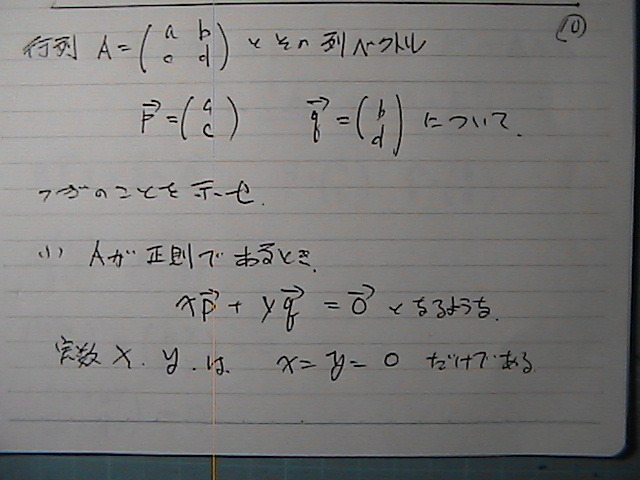 (1)
行列 A = ( a b / c d ) とその列ベクトル
p→ = ( a / c )  q→ = ( b / d ) について、
つぎのことを示せ.
(1) Aが正則であるとき、
xp→ + yq→ = 0→ となるような、
実数 x. y. は x = y = 0 だけである